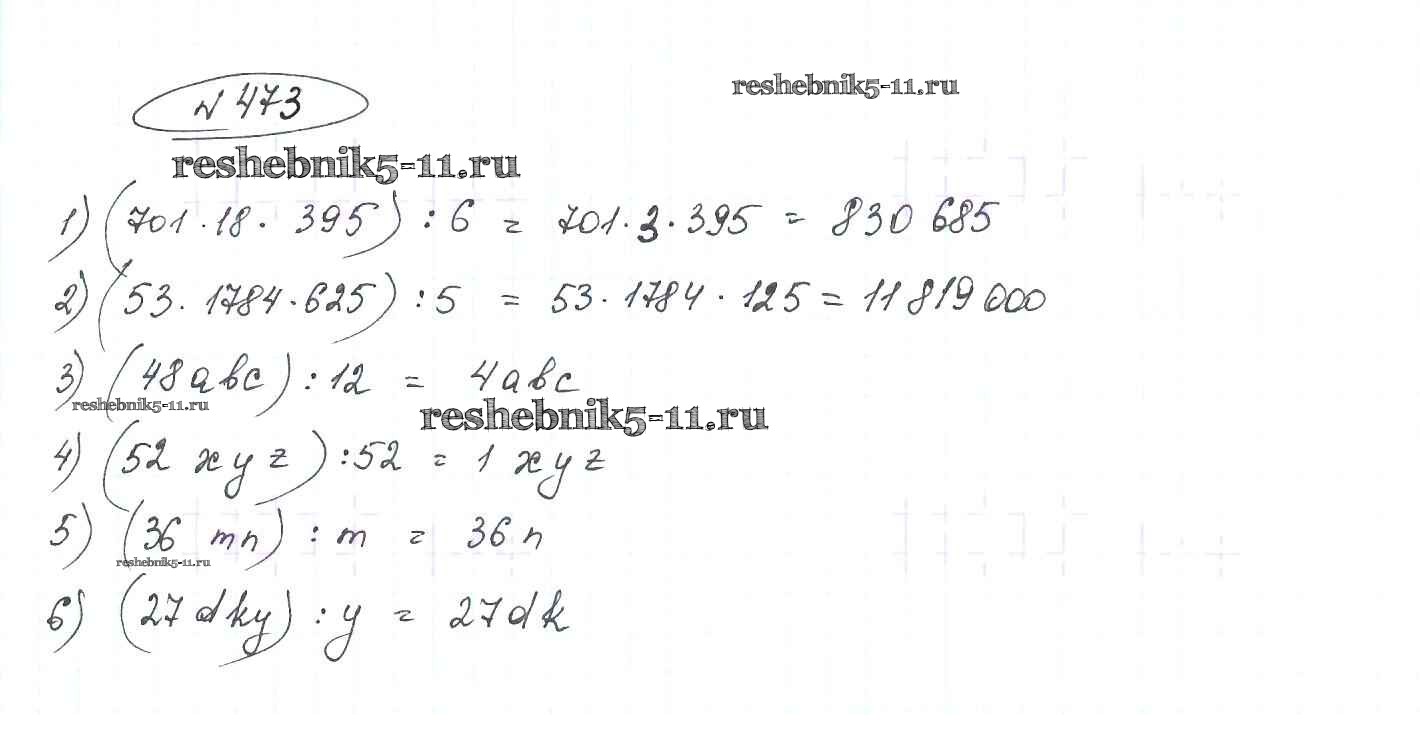 № 473
reshebnik5-11.ru
reshebnik5-11.ru
1) (701·18·395):6 = 701·3·395 = 830 685
2) (53·1784·625):5 = 53·1784·125 = 11 819 000
3) (48abc):12 = 4abc
reshebnik5-11.ru
reshebnik5-11.ru
4) (52 xyz):52 = 1 xyz
5) (36 mn):m = 36n
reshebnik5-11.ru
6) (27dky):y = 27dk